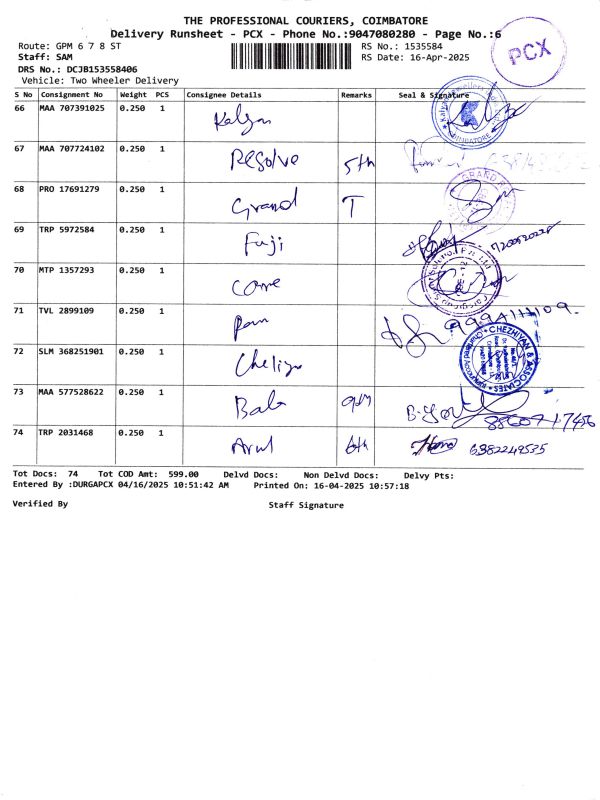 THE PROFESSIONAL COURIERS, COIMBATORE
Delivery Runsheet - PCX - Phone No.:9047080280 - Page No.:6
Route: GPM 6 7 8 ST RS No.: 1535584
Staff: SAM RS Date: 16-Apr-2025
DRS No.: DCJB153558406
Vehicle: Two Wheeler Delivery
PCX
S No Consignment No Weight PCS Consignee Details Remarks Seal & Signature
66 MAA 707391025 0.250 1 Kalyan
67 MAA 707724102 0.250 1 Resolve 5th
68 PRO 17691279 0.250 1 Grand T
69 TRP 5972584 0.250 1 Fuji
70 MTP 1357293 0.250 1
71 TVL 2899109 0.250 1
72 SLM 368251901 0.250 1
CHEZHIYAN & ASSOCIATES
73 MAA 577528622 0.250 1 Bala
74 TRP 2031468 0.250 1 Arul 6th 6382249535
Tot Docs: 74 Tot COD Amt: 599.00 Delvd Docs: Non Delvd Docs: Delvy Pts:
Entered By :DURGAPCX 04/16/2025 10:51:42 AM Printed On: 16-04-2025 10:57:18
Verified By Staff Signature